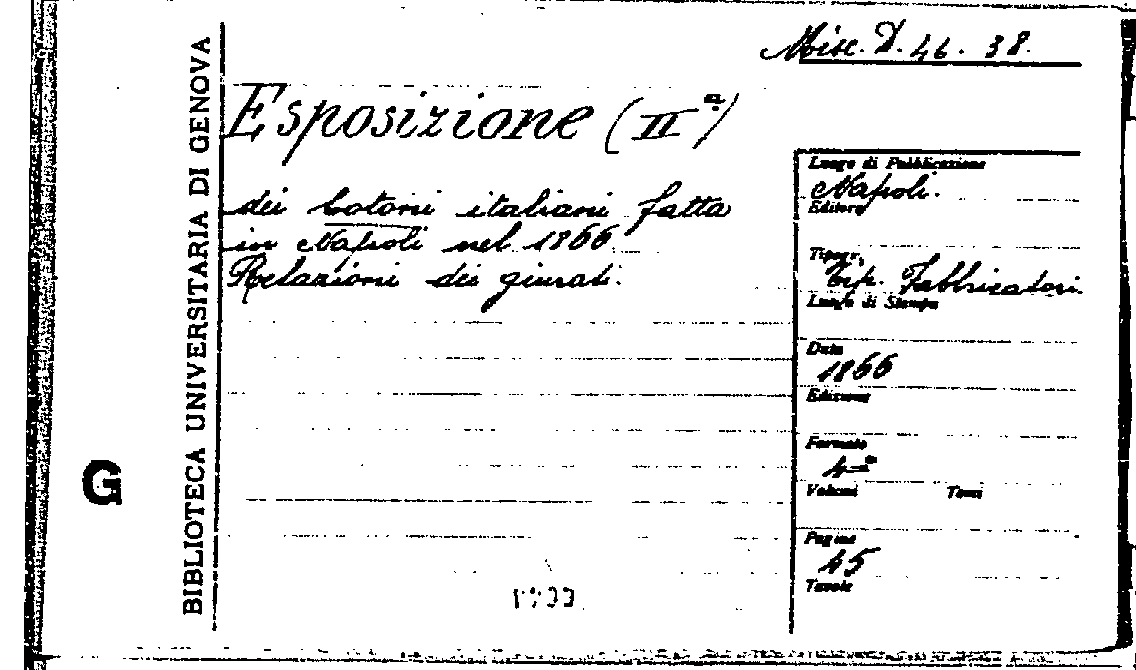 Misc. D. 46. 38.
BIBLIOTECA UNIVERSITARIA DI GENOVA
G
Esposizione (IIª)
dei cotoni italiani fatta
in Napoli nel 1866.
Relazioni dei giurati.
Luogo di Pubblicazione
Napoli.
Editore
Tipogr.
Tip. Fabbricatori
Luogo di Stampa
Data
1866
Edizione
Formato
4°
Volumi Tomi
Pagine
45
Tavole